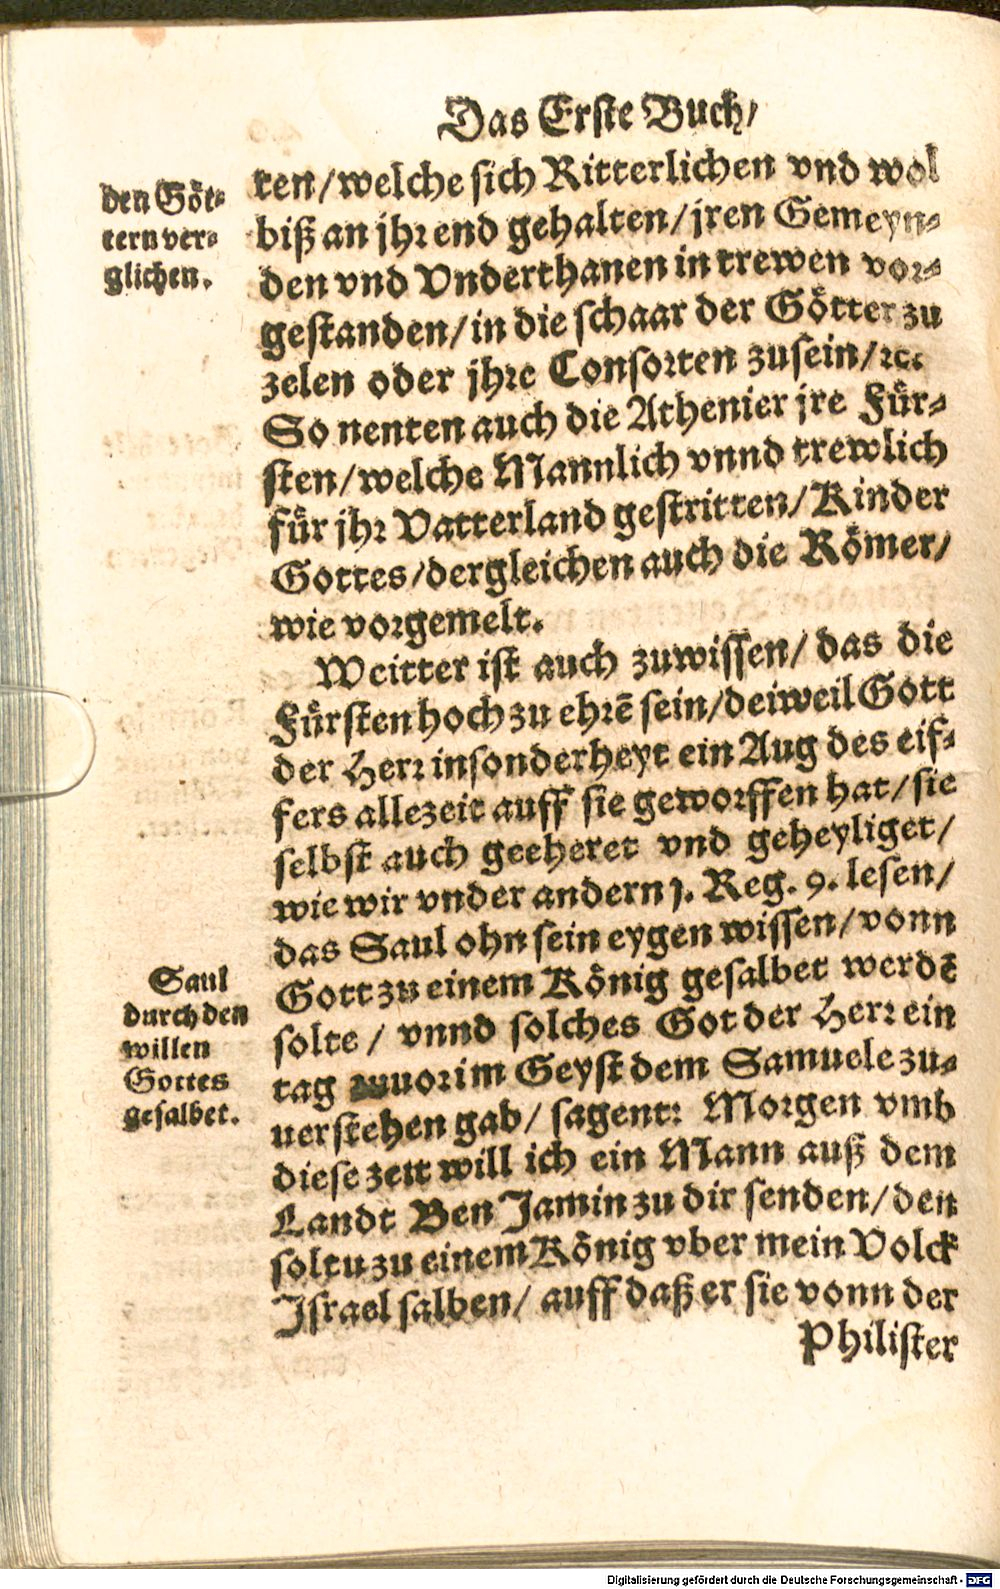 Das Erste Buch/
den Göt-
tern ver-
glichen.
ten/welche sich Ritterlichen vnd wol
biß an jhr end gehalten/jren Gemeyn-
den vnd Vnderthanen in trewen vor-
gestanden/in die schaar der Götter zu
zelen oder jhre Consorten zu sein/ꝛc.
So nenten auch die Athenier jre Für-
sten/welche Mannlich vnnd trewlich
für jhr Vatterland gestritten/Kinder
Gottes/dergleichen auch die Römer/
wie vorgemelt.
Weitter ist auch zuwissen/das die
Fürsten hoch zu ehrẽ sein/deiweil Gott
der Herr insonderheyt ein Aug des eif-
fers allezeit auff sie geworffen hat/sie
selbst auch geeheret vnd geheyliget/
wie wir vnder andern 1. Reg. 9. lesen/
das Saul ohn sein eygen wissen/vonn
Gott zu einem König gesalbet werdẽ
solte/ vnnd solches Got der Herr ein
tag zuuor im Geyst dem Samuele zu-
uerstehen gab/ sagent: Morgen vmb
diese zeit will ich ein Mann auß dem
Landt Ben Jamin zu dir senden/den
soltu zu einem König vber mein Volck
Israel salben/ auff daß er sie vonn der
Philister
Saul
durch den
willen
Gottes
gesalbet.
Digitalisierung gefördert durch die Deutsche Forschungsgemeinschaft - DFG